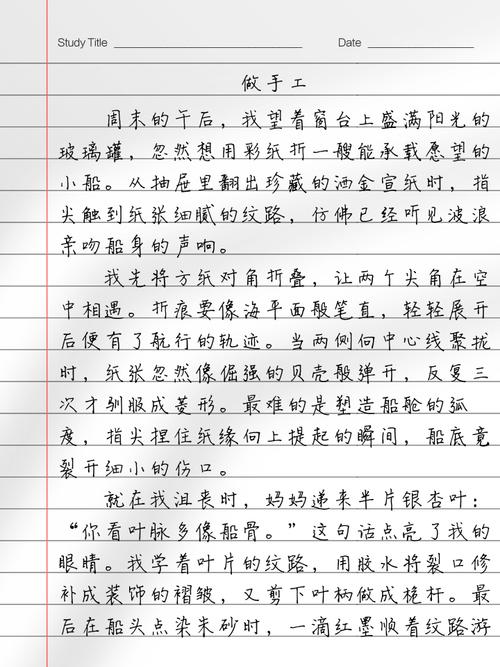 Study Title
Date
做手工
周末的午后，我望着窗台上盛满阳光的
玻璃罐，忽然想用彩纸折一艘能承载愿望的
小船。从抽屉里翻出珍藏的洒金宣纸时，指
尖触到纸张细腻的纹路，仿佛已经听见波浪
亲吻船身的声响。
我先将方纸对角折叠，让两个尖角在空
中相遇。折痕要像海平面般笔直，轻轻展开
后便有了航行的轨迹。当两侧向中心线聚拢
时，纸张忽然像倔强的贝壳般弹开，反复三
次才驯服成菱形。最难的是塑造船舱的弧
度，指尖捏住纸缘向上提起的瞬间，船底竟
裂开细小的伤口。
就在我沮丧时，妈妈递来半片银杏叶：
“你看叶脉多像船骨。”这句话点亮了我的
眼睛。我学着叶片的纹路，用胶水将裂口修
补成装饰的褶皱，又剪下叶柄做成桅杆。最
后在船头点染朱砂时，一滴红墨顺着纹路游